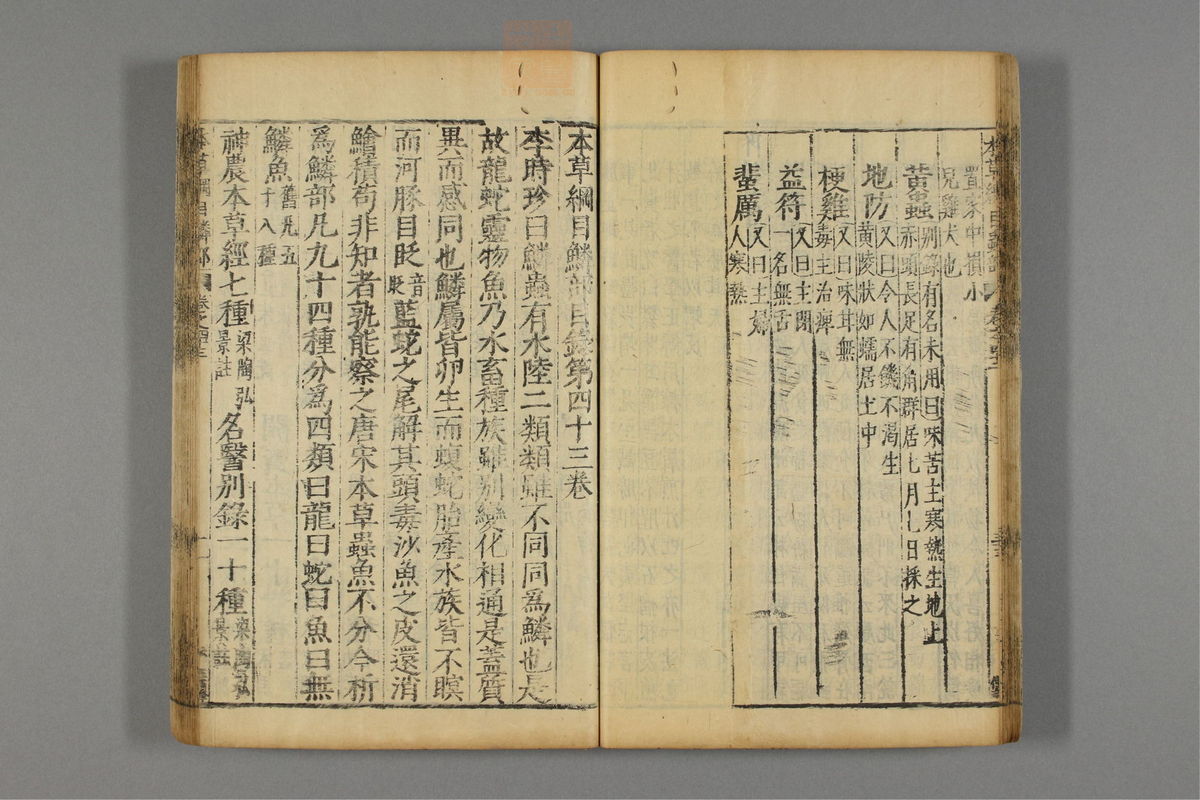 置家中損小
児雞犬也
黃蟲別錄有名未用曰味苦主寒熱生地上
赤頭長足有角群居七月七日採之
地防又曰令人不饑不渴生
黃陵狀如蠕居土中
梗雞又曰味甘無
毒主治痺
益符又曰主閉
一名無舌
蜚厲又曰主婦
人寒熱
本草綱目鱗部目錄第四十三卷
李時珍曰鱗蟲有水陸二類類雖不同同爲鱗也是
故龍蛇靈物魚乃水畜種族雖别變化相通是蓋質
異而感同也鱗屬皆卵生而蝮蛇胎產水族皆不瞑
而河豚目眨音眨藍蛇之尾解其頭毒沙魚之皮還消
鱠積苟非知者孰能察之唐宋本草蟲魚不分今析
爲鱗部凡九十四種分爲四類曰龍曰蛇曰魚曰無
鱗魚舊凡五十八種
神農本草經七種梁陶弘景註名醫別錄一十種梁陶弘景註
本草綱目鱗部